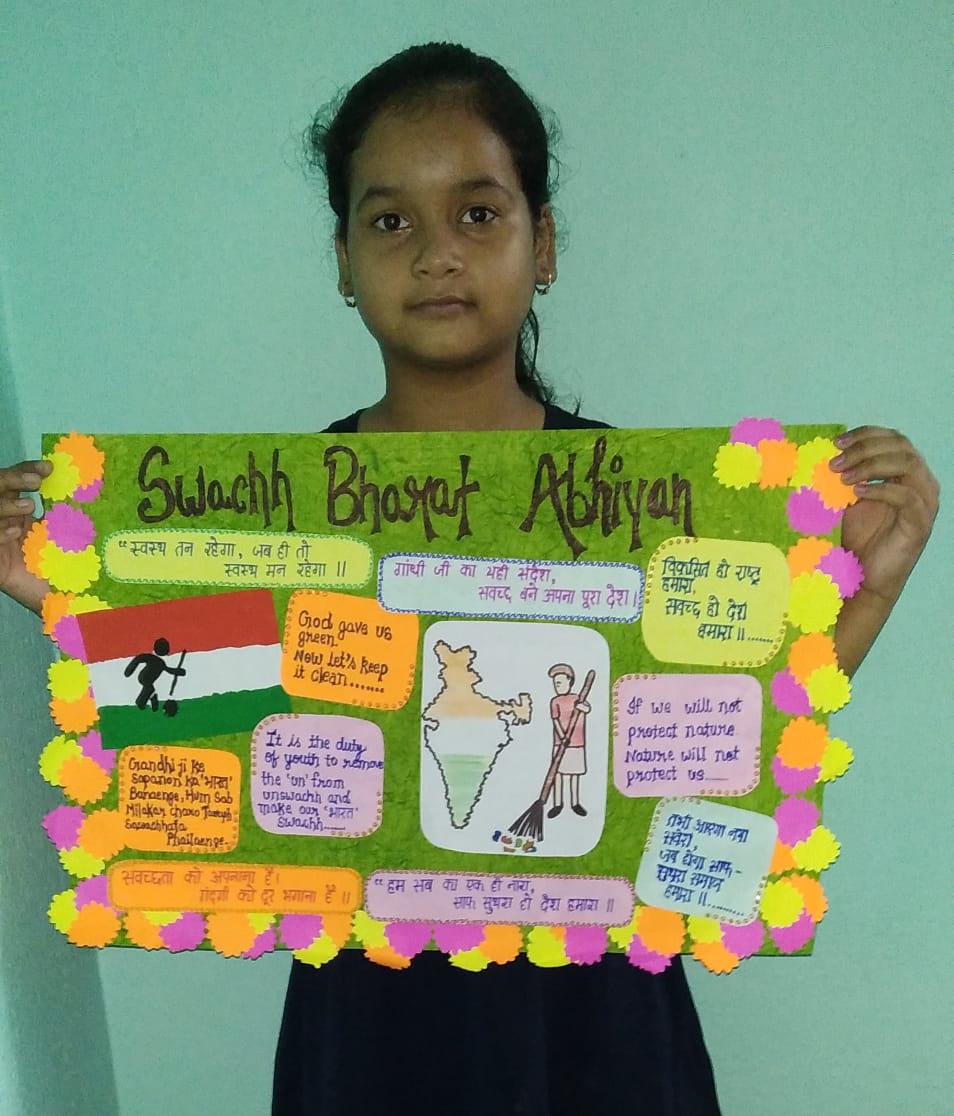 Swachh Bharat Abhiyan
“स्वस्थ तन रहेगा, जब ही तो
स्वस्थ मन रहेगा ॥
गांधी जी का यही संदेश,
सवच्छ बने अपना पूरा देश।
विकसित हो राष्ट्र
हमारा,
सवच्छ हो देश
हमारा ॥.......
God gave us
green
Now let's keep
it clean.......
If we will not
protect nature.
Nature will not
protect us......
It is the duty
of youth to remove
the 'un' from
unswachh and
make our 'भारत'
swachh......
Gandhi ji ke
sapanon ka 'भारत'
Banaenge, Hum Sab
Milakar charo Taraph
Sawachhata
Phailaenge.
तभी आएगा नया
सवेरा,
जब होगा साफ-
सुथरा समाज
हमारा ॥.........
सवच्छता को अपनाना है।
गंदगी को दूर भगाना है ॥
“हम सब का एक ही नारा,
साफ सुथरा हो देश हमारा ॥